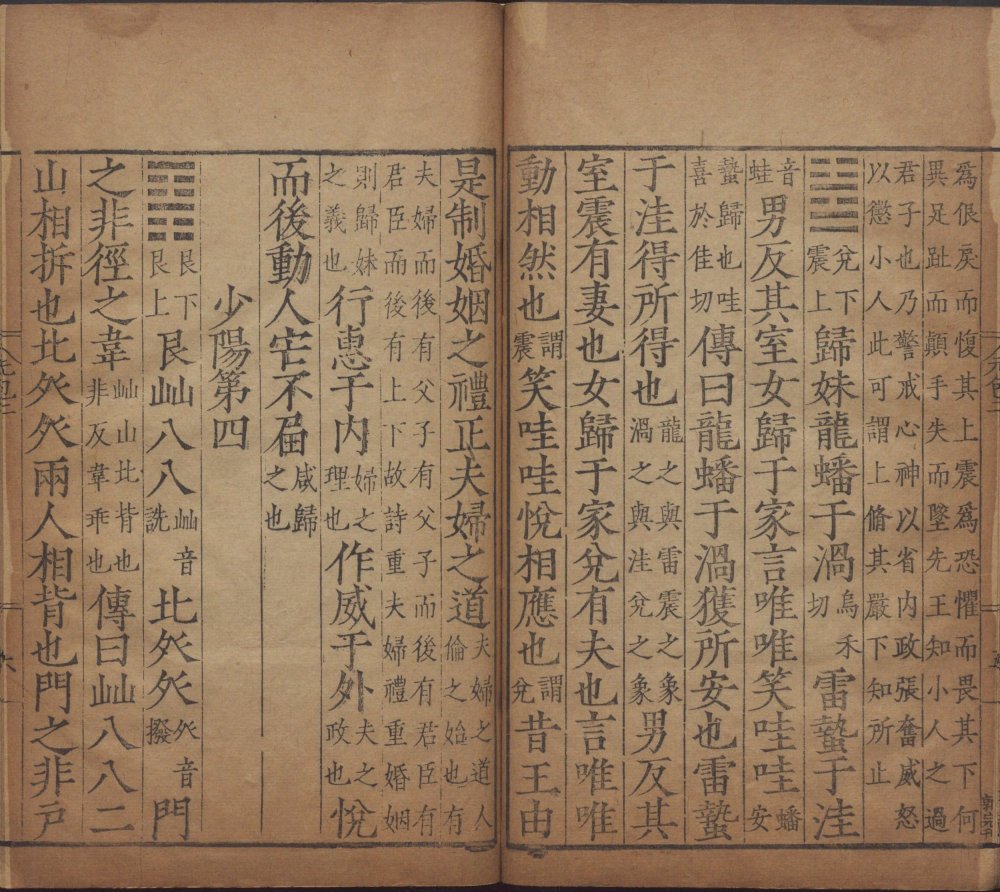 為佷戾而愎其上震為恐懼而畏其下何
異足趾而顛手失而墜先王知小人之過
君子也乃警戒心神以省内政張奮威怒
以懲小人此可謂上脩其嚴下知所止
䷵兌下震上歸妹龍蟠于渦烏禾切雷蟄于洼
音蛙男反其室女歸于家言唯唯笑哇哇蟠安
蟄歸也哇喜於佳切傳曰龍蟠于渦獲所安也雷蟄
于洼得所得也龍之與雷震之象渦之與洼兌之象男反其
室震有妻也女歸于家兌有夫也言唯唯
動相然也謂震笑哇哇悅相應也謂兌昔王由
是制婚姻之禮正夫婦之道夫婦之道人倫之始也有
夫婦而後有父子有父子而後有君臣有
君臣而後有上下故詩重夫婦禮重婚姻
則歸妹之義也行惠于内婦之理也作威于外夫之政也悅
而後動人宅不屆咸歸之也
少陽第四
䷳艮下艮上艮屾八八屾音詵北癶癶癶音撥門
之非徑之韋屾山北背也非反韋乖也傳曰屾八八二
山相拆也北癶癶兩人相背也門之非戶